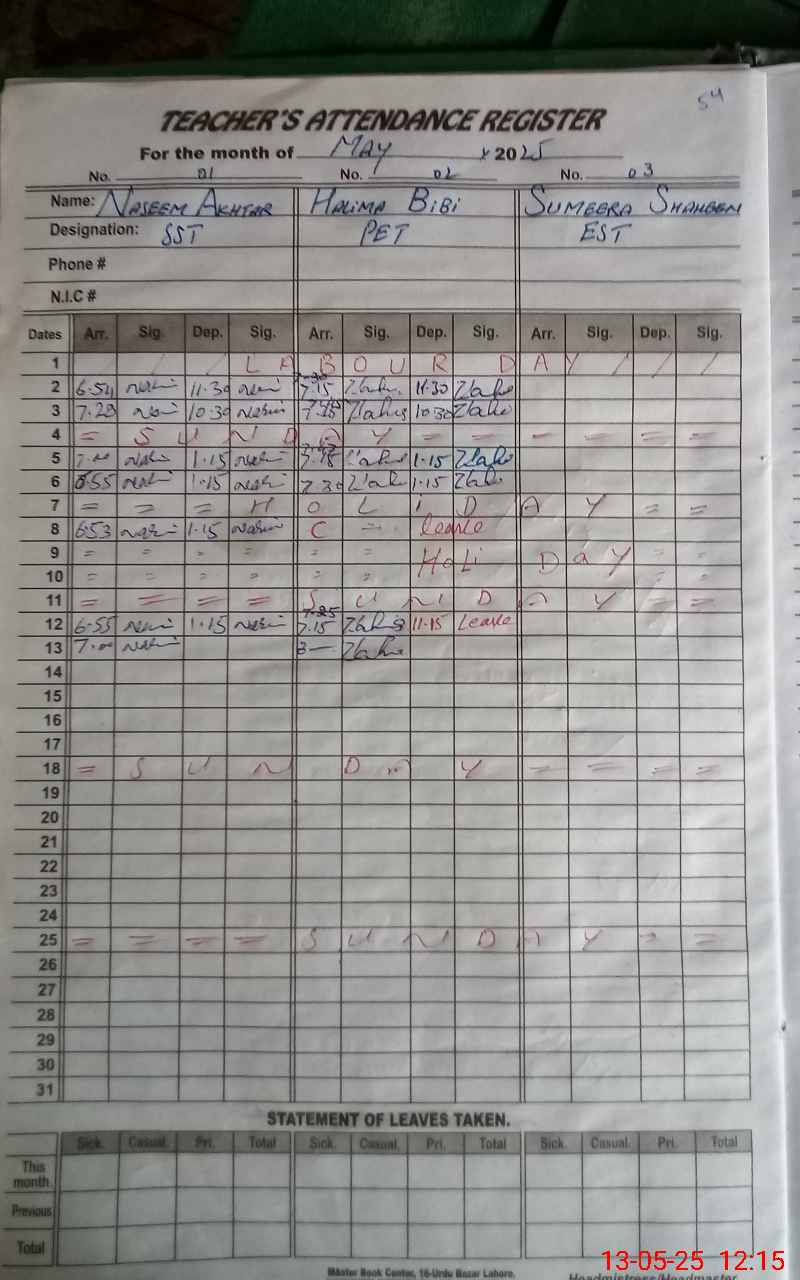 54
TEACHER'S ATTENDANCE REGISTER
For the month of MAY 2025
No. 01 No. 02 No. 03
Name: NASEEM AKHTAR HALIMA BIBI SUMEERA SHAHEEN
Designation: SST PET EST
Phone #
N.I.C #
Dates Arr. Sig. Dep. Sig. Arr. Sig. Dep. Sig. Arr. Sig. Dep. Sig.
1 / / / L A B O U R D A Y / / /
2 6.54 11.30 7.15 11.30
3 7.20 10.30 10.30
4 = S U N D A Y = = - = = =
5 7.00 1.15 1.15
6 6.55 1.15 7.30 1.15
7 = = = H O L I D A Y = =
8 6.53 1.15 C = leave
9 = = = = = = HoLi D a Y = =
10 = = = = = = = =
11 = = = = S U N D A Y = =
12 6.55 1.15 7.25 7.15 11.15 Leave
13 7.00
14
15
16
17
18 = S U N D A Y = = = =
19
20
21
22
23
24
25 = = = = S U N D A Y = =
26
27
28
29
30
31
STATEMENT OF LEAVES TAKEN.
Sick. Casual. Pri. Total Sick. Casual. Pri. Total Sick. Casual. Pri. Total
This month.
Previous
Total
Master Book Center, 16-Urdu Bazar Lahore.
Headmistress/Headmaster
13-05-25 12:15